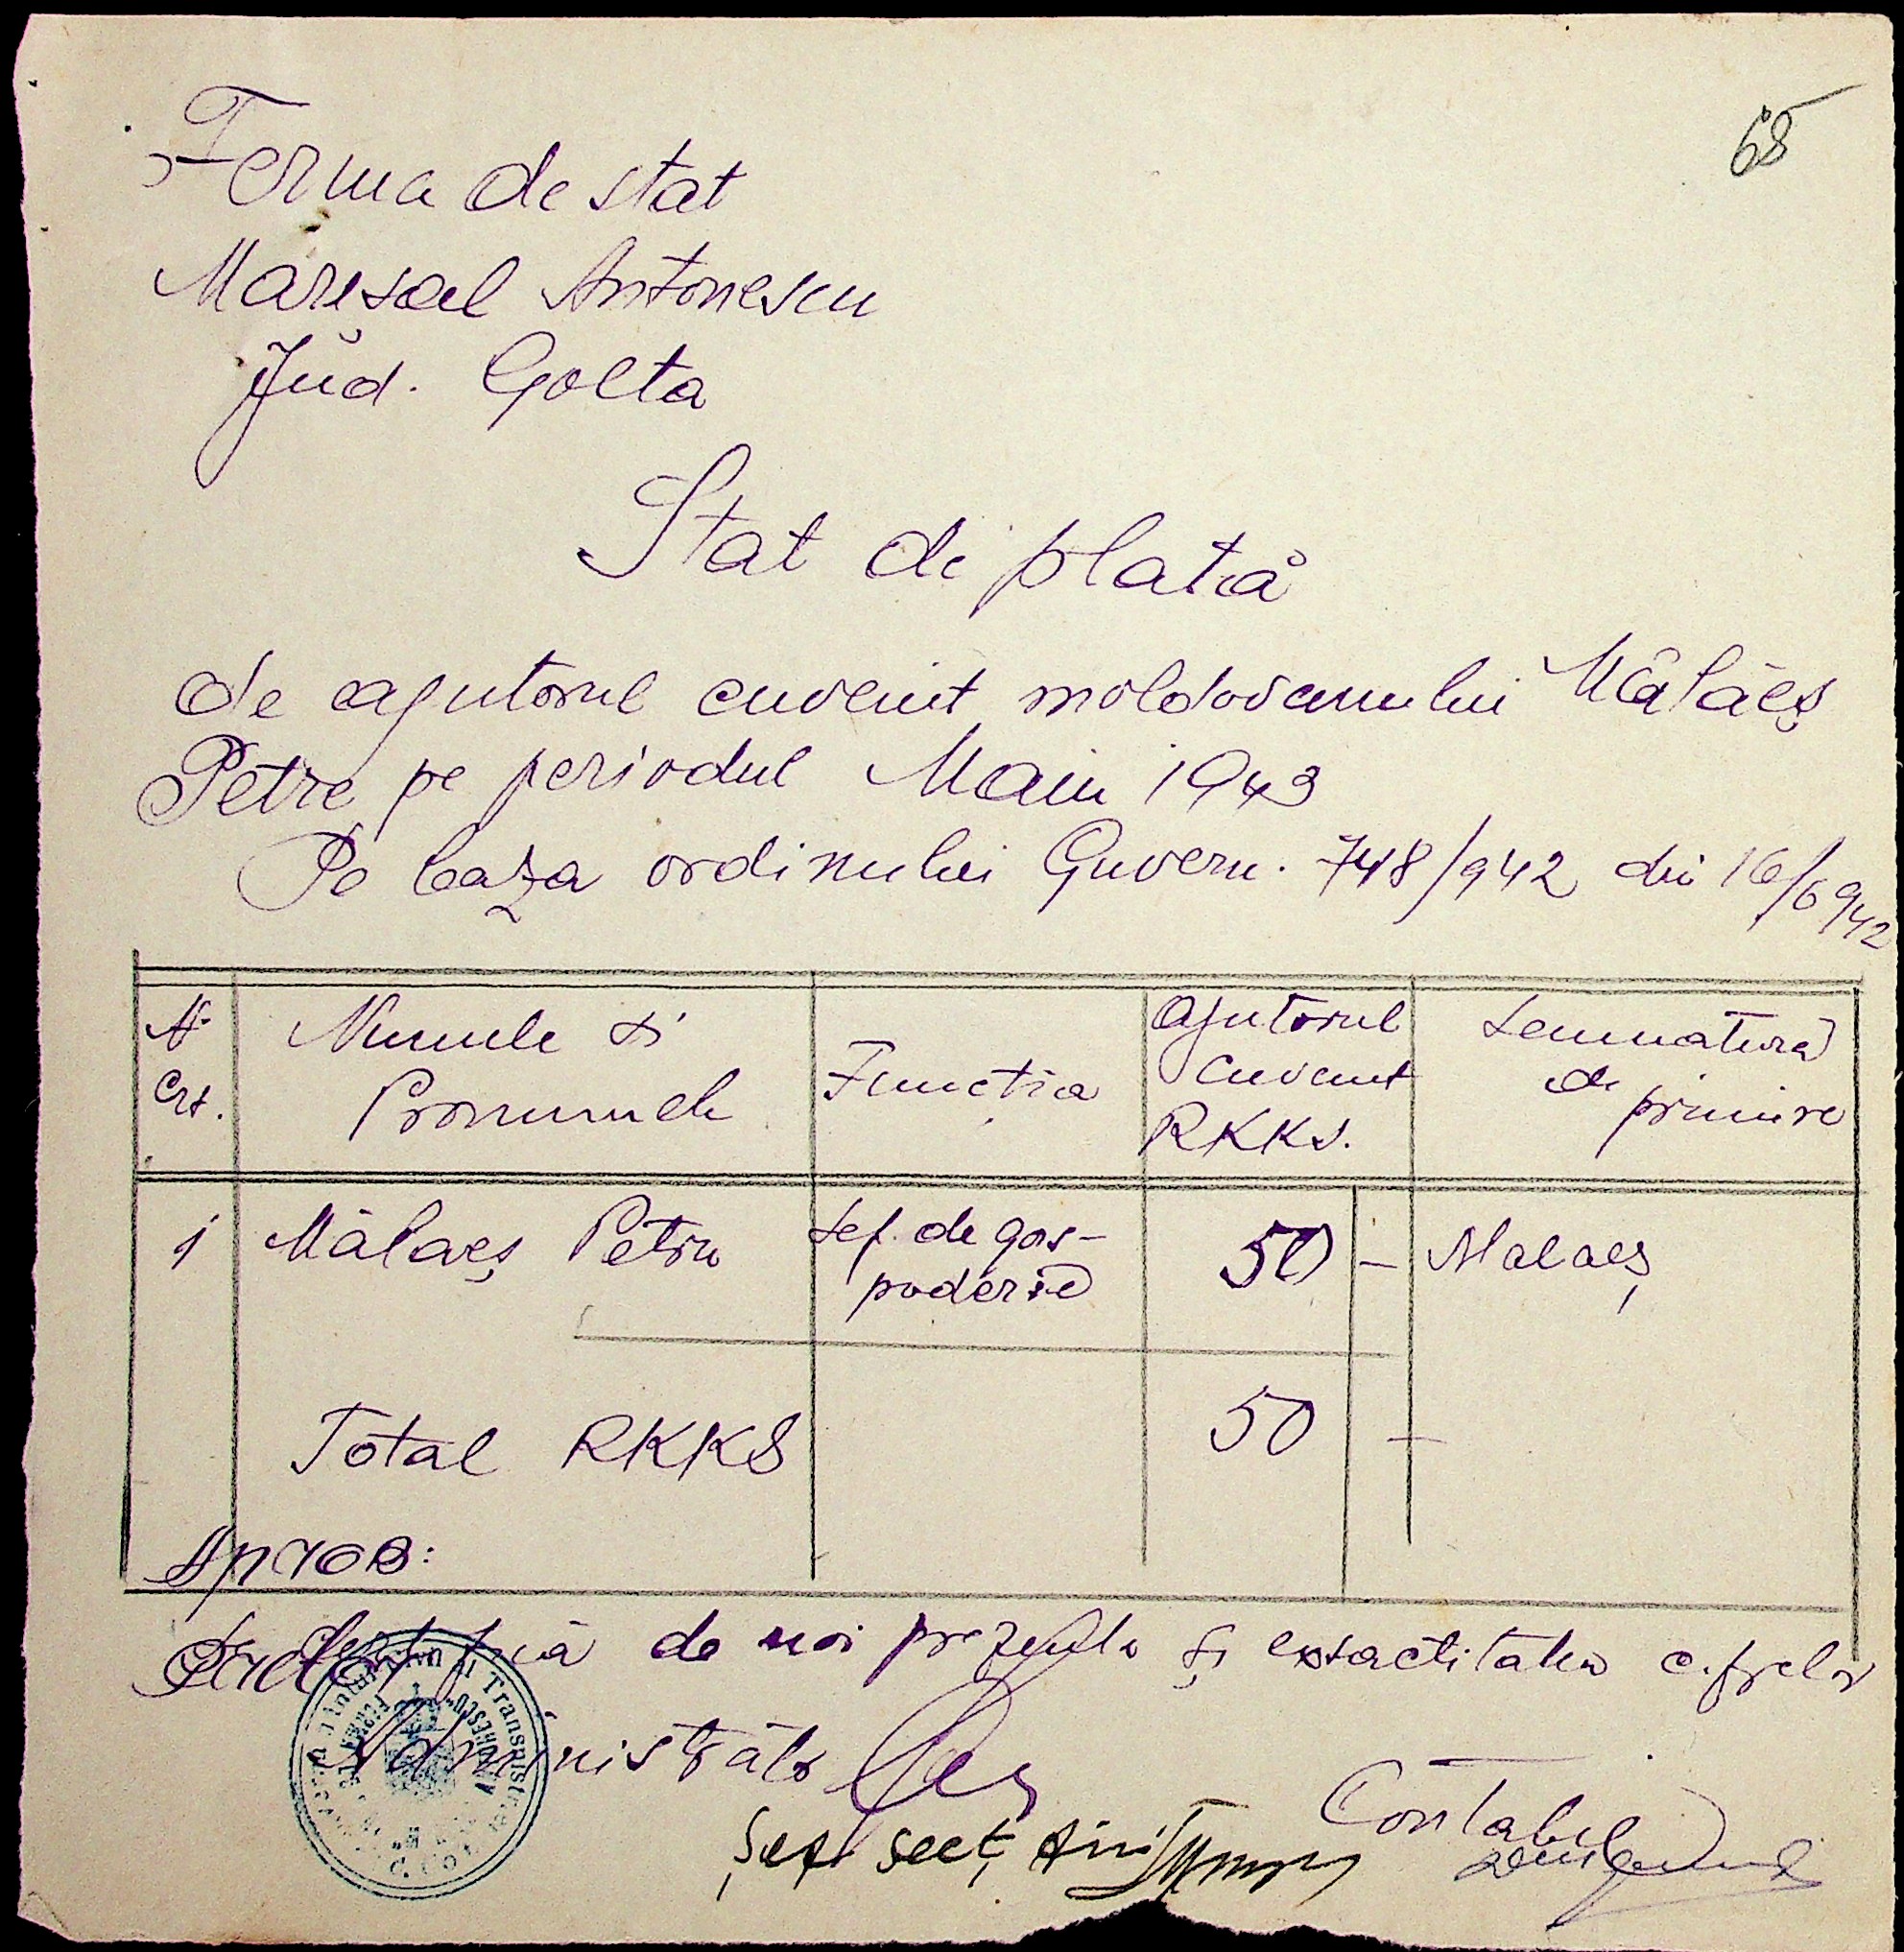 68
Ferma de stat
Maresal Antonescu
Jud. Golta
Stat de plată
de ajutorul cuvenit moldovanului Mălăeș
Petre pe periodul Maiu 1943
Pe baza ordinului Guvern. 748/942 din 16/6 942
N. Crt.
Numele si Pronumele
Functia
Ajutorul cuvenit RKKS.
Semnatura de primire
1 Mălaeș Petru Sef. de gos-poderie 50 - Malaeș
Total RKKS 50 -
Aprob:
de noi prezenta și exsactitatea cifrelor
Administrator
Șef Secț.
Contabil